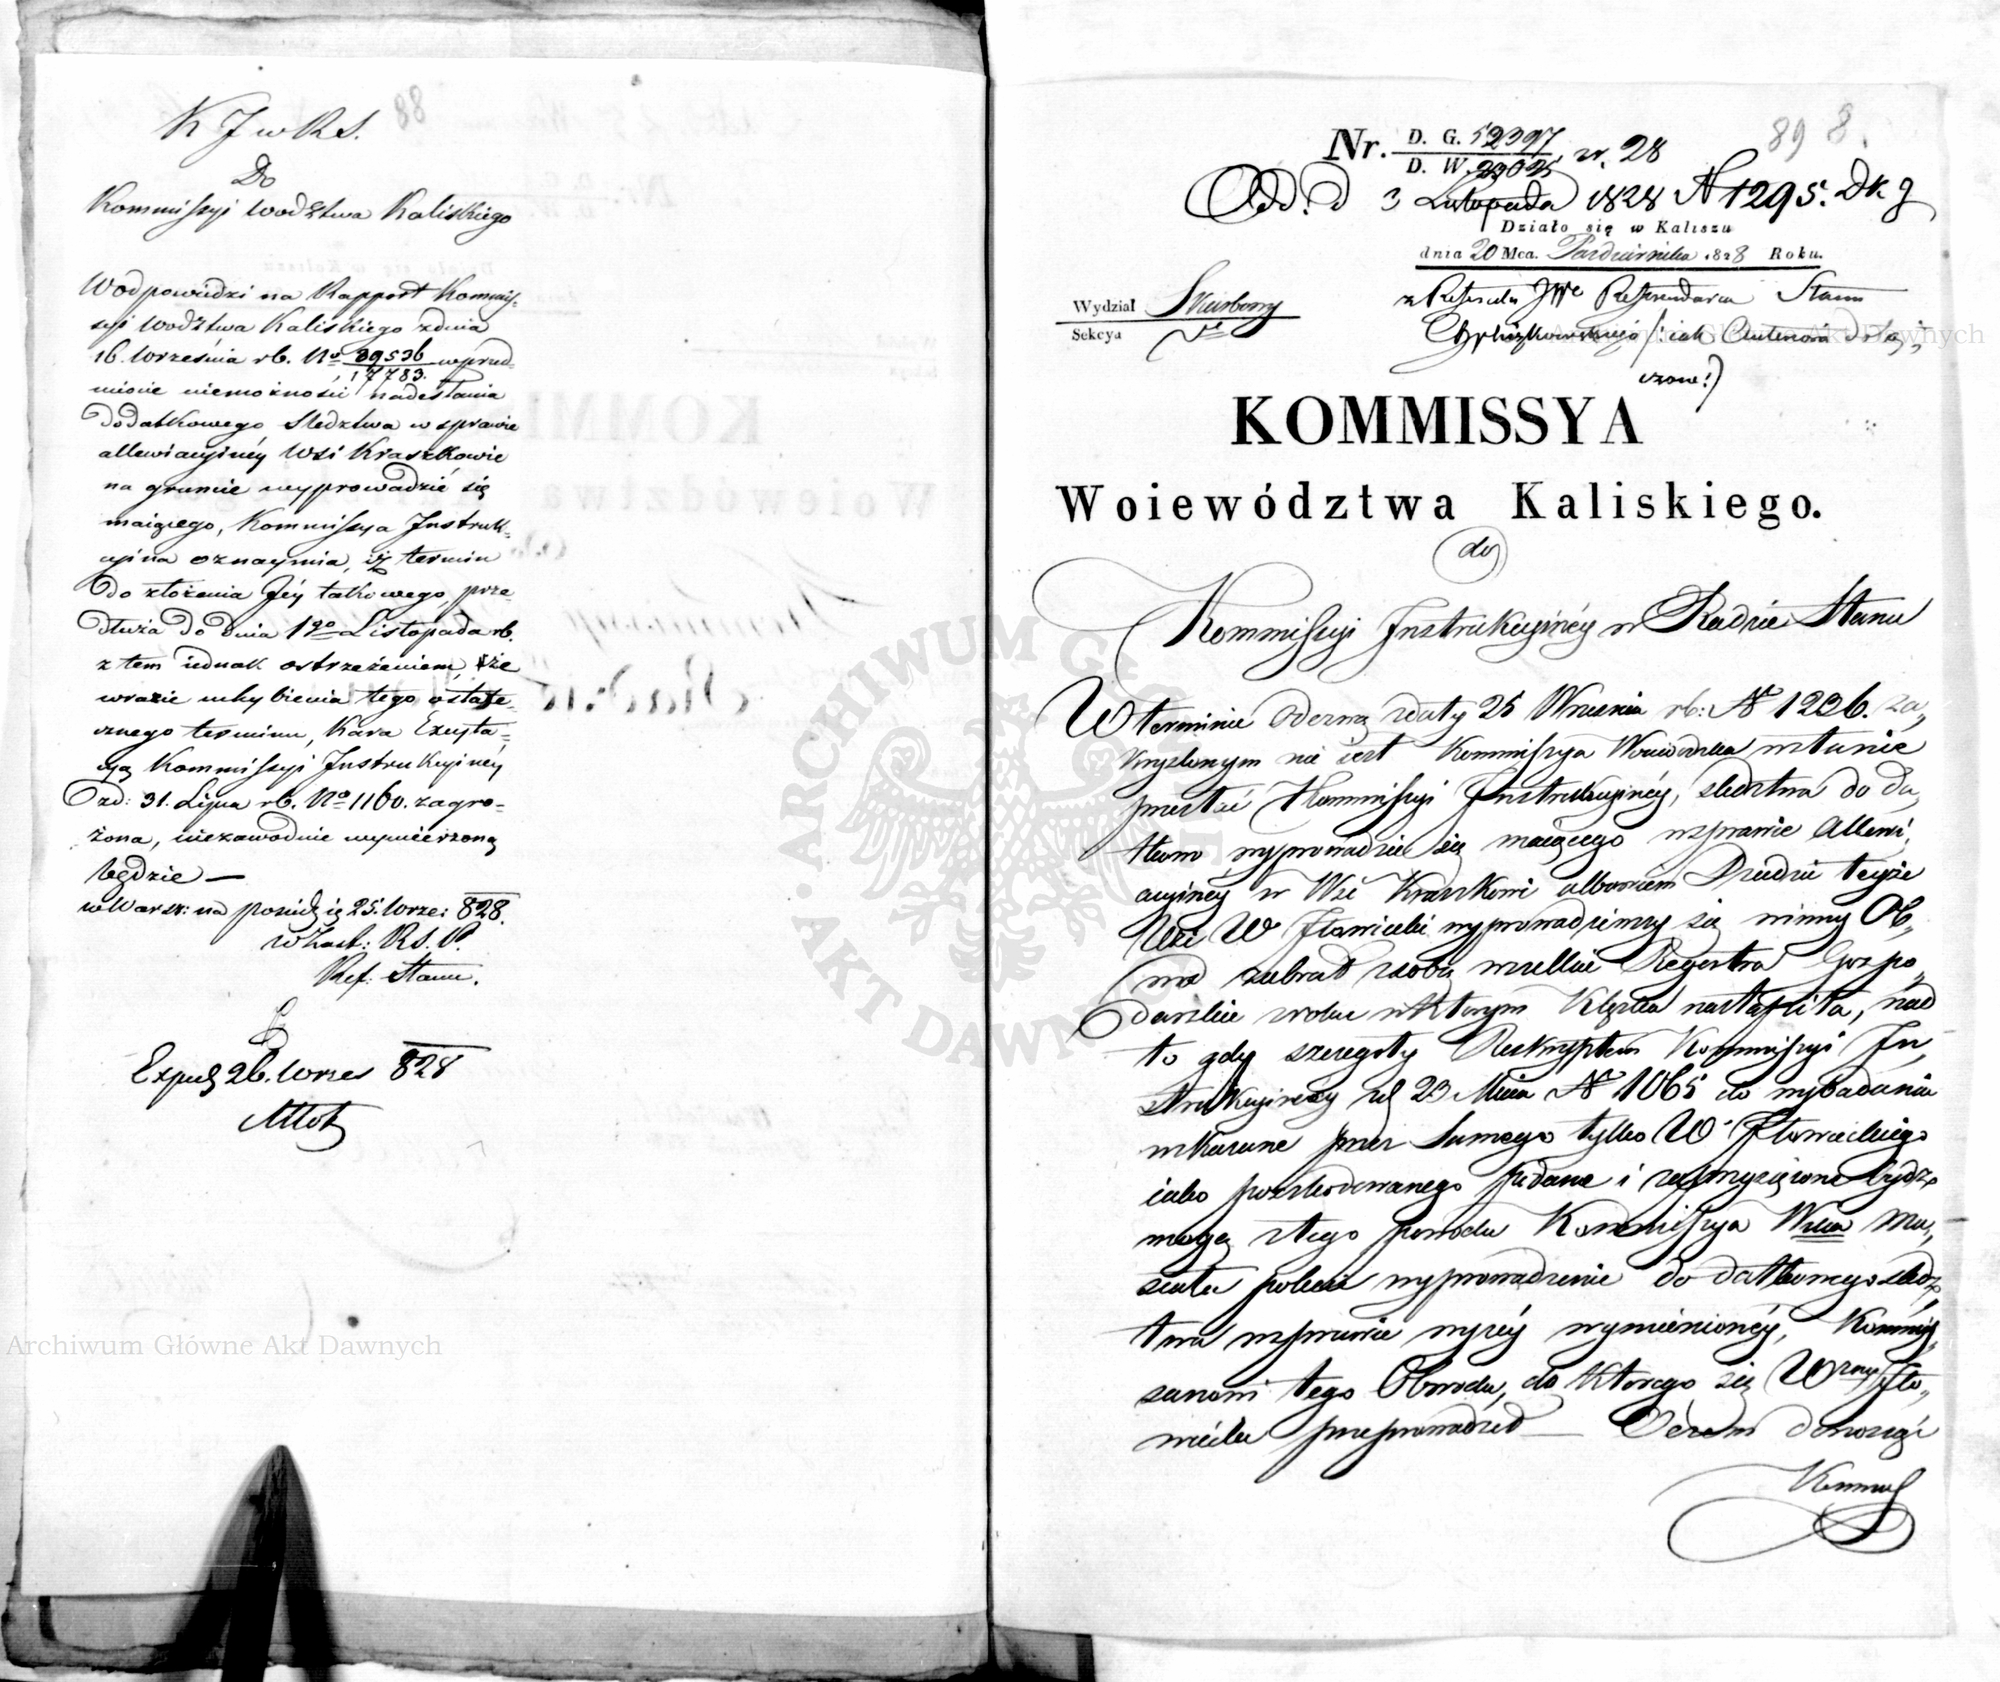 88
K J w R S.
Do
Kommissyi Wodztwa Kaliskiego
W odpowiedzi na Rapport Kommis-
syi Wodztwa Kaliskiego zdnia
16. Września rb. No 39536/17783. wprzed-
miocie niemożności nadesłania
dodatkowego śledztwa w sprawie
allewiacyinéy Wsi Kraszkowie
na gruncie wyprowadzić się
maiącego, Kommissya Instruk-
cyina oznaymia, iż termin
do złożenia Jéy takowego, prze-
dłuża do dnia 1go Listopada rb.
z tem iednak ostrzeżeniem, że
wrazie uchybienia tego ostate-
cznego terminu, Kara Exeyta-
cyą Kommissyi Instrukcyinéy
zd: 31. Lipca rb. No 1160. zagro-
żona, niezawodnie wymierzoną
będzie —
w Warsz: na posiedz: 25. Wrze: 828.
w Zast: R. S. P.
Ref. Stanu.
Exped 26. Wrzes 828
89 8.
Nr. D. G. 52397 / D. W. 23025 w. 28
Odd. d 3 Listopada 1828 N 1295. Dk. g
Działo się w Kaliszu
dnia 20 Mca. Października 1828 Roku.
Wydział Skarbowy
Sekcya
z Referatu JWe Referendarza Stanu
KOMMISSYA
Woiewództwa Kaliskiego.
do
Kommissyi Instrukcyinéy w Radzie Stanu
W terminie Odezwą zdaty 25 Września rb: No 1236. za-
kryślonym nie iest Kommissya Woiewódzka wstanie
przesłać Kommissyi Instrukcyinéy, śledztwa do da,
tkowo wyprowadzić się maiącego wsprawie Allewi,
acyinéy w Wsi Kraszkowi albowiem Dziedzic teyże
Wsi W Iłowiecki wyprowadziwszy się winny Ob,
wód zabrał zsobą wszelkie Regestra Gospo,
darskie zroku wktórym Klęska nastąpiła, nad
to gdy szczegóły Reskryptem Kommissyi In,
strukcyinéy zd 23 Maia No 1065 do wybadania
wkazane przez Samego tylko W Iłowieckiego
iako poszkodowanego podane i zaprzysiężone bydź
mogą ztego powodu Kommissya Wdzka mu,
siała polecić wyprowadzenie dodatkowego śledz,
twa wsprawie wyżéy wymienionéy, Kommis,
sarzowi tego Obwodu, do którego się Wzny Iło,
wiecki przeprowadził — O czem donosząc
Kommis
Archiwum Główne Akt Dawnych
Archiwum Główne Akt Dawnych
ARCHIWUM GŁÓWNE AKT DAWNYCH